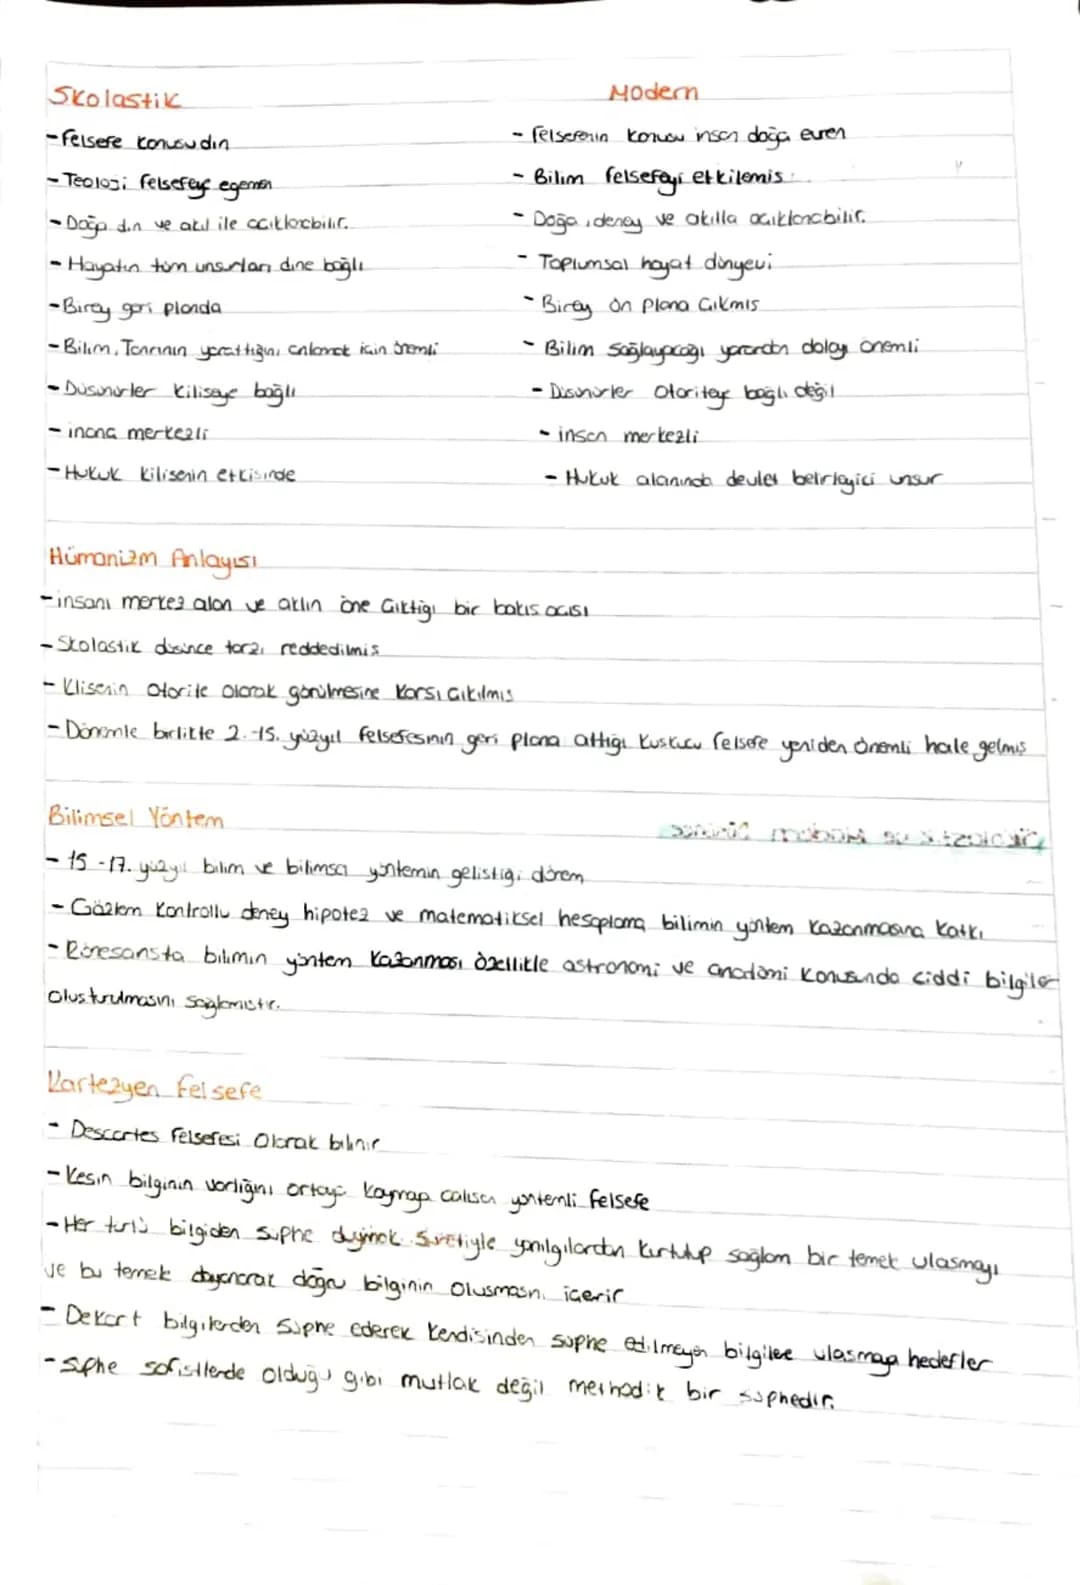 Skolastik
-Felsefe konusu din
-Teoloji felsefeye egemen
-Doğa din ve akıl ile açıklanabilir.
-Hayatın tüm unsurları dine bağlı
-Birey geri planda
-Bilim, Tanrının yarattığını anlamak için önemli
-Düşünürler kiliseye bağlı
-inanç merkezli
-Hukuk kilisenin etkisinde
Modern
-felsefenin konusu insan doğa evren
-Bilim felsefeyi etkilemiş
-Doğa, deney ve akılla açıklanabilir.
-Toplumsal hayat dünyevi
-Birey ön plana çıkmış
-Bilim sağlayacağı yarardan dolayı önemli
-Düşünürler otoriteye bağlı değil
-insan merkezli
-Hukuk alanında devlet belirleyici unsur
Hümanizm Anlayışı
-insanı merkez alan ve aklın öne çıktığı bir bakış açısı
-Skolastik düşünce tarzı reddedilmiş
-Klisenin otorite olarak görülmesine karşı çıkılmış
-Dönemle birlikte 2.-15. yüzyıl felsefesinin geri plana attığı kuşkucu felsefe yeniden önemli hale gelmiş
Bilimsel Yöntem
-15-17. yüzyıl bilim ve bilimsel yöntemin geliştiği dönem
-Gözlem kontrollu deney hipotez ve matematiksel hesaplama bilimin yöntem kazanmasına katkı
-Rönesansta bilimin yöntem kazanması özellikle astronomi ve anatomi konusunda ciddi bilgiler
oluşturulmasını sağlamıştır.
Kartezyen Felsefe
-Descartes felsefesi olarak bilinir
-Kesin bilginin varlığını ortaya koymaya çalışan yöntemli felsefe
-Her türlü bilgiden şüphe duymak suretiyle yanılgılardan kurtulup sağlam bir temele ulaşmayı
ve bu temele dayanarak doğru bilginin oluşmasını içerir
-Dekart bilgilerden şüphe ederek kendisinden şüphe edilmeyen bilgilere ulaşmayı hedefler
-Şüphe sofistlerde olduğu gibi mutlak değil methodik bir şüphedir.